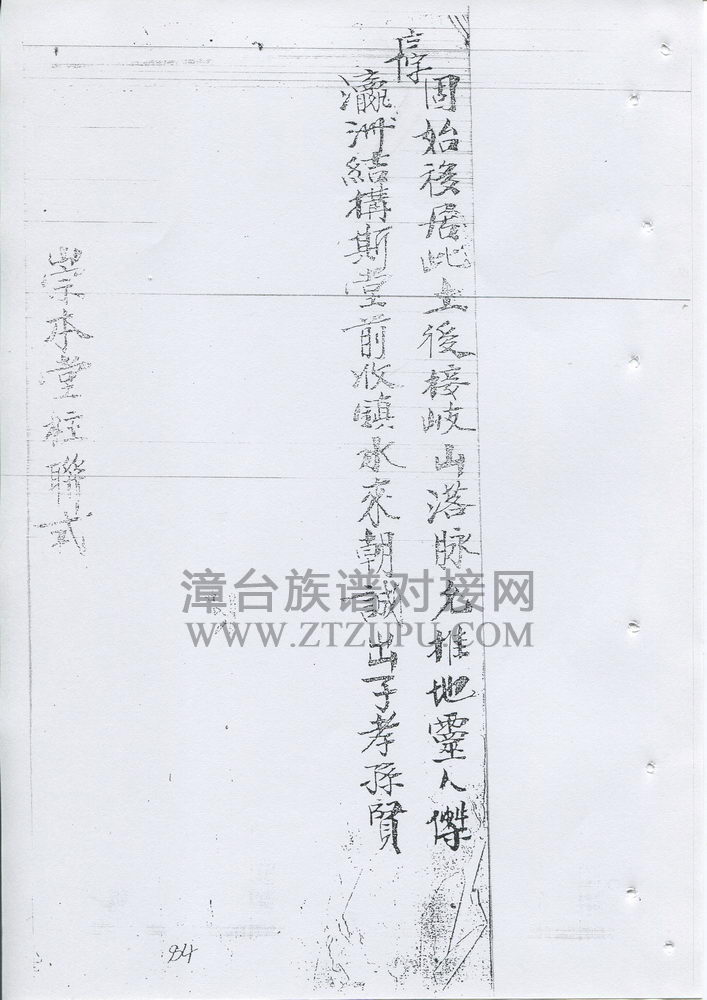 停
固始後居此土後接岐山落脉允推地靈人傑
瀛洲結構斯堂前收鎮水來朝誠出子孝孫賢
崇本堂柱聯式
漳台族谱对接网
WWW.ZTZUPU.COM
84